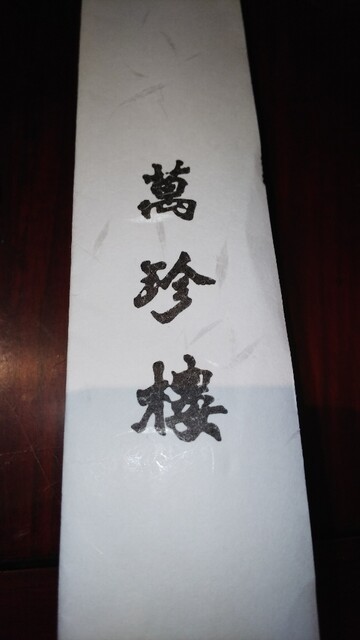 萬珍樓